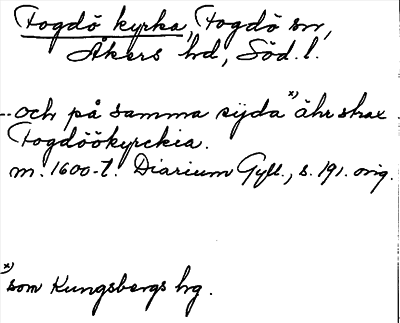 Fogdö kyrka, Fogdö sn,
Åkers hd, Söd. l.
--och på samma sÿda x) ähr strax
Fogdöökyrckia.
m. 1600-t. Diarium Gyll., s. 191. orig.
x) som Kungsbergs hg.